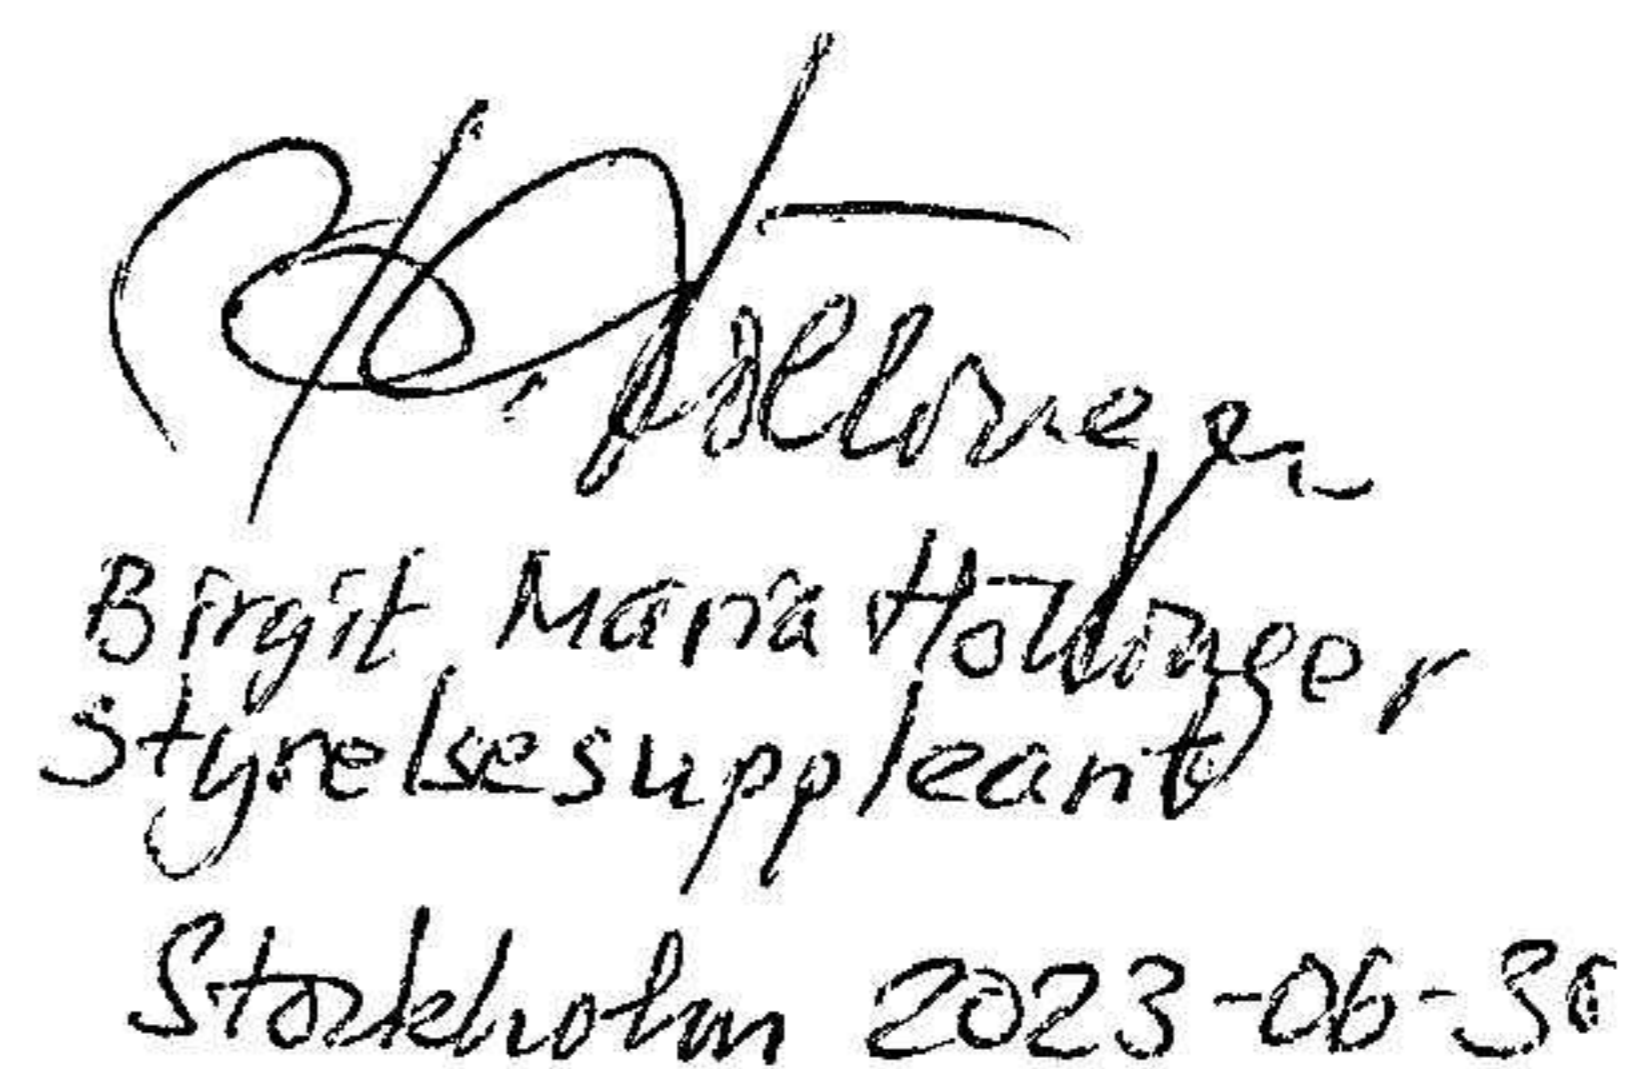 Birgit Maria Höllinger
Styrelsesuppleant
Stockholm 2023-06-30